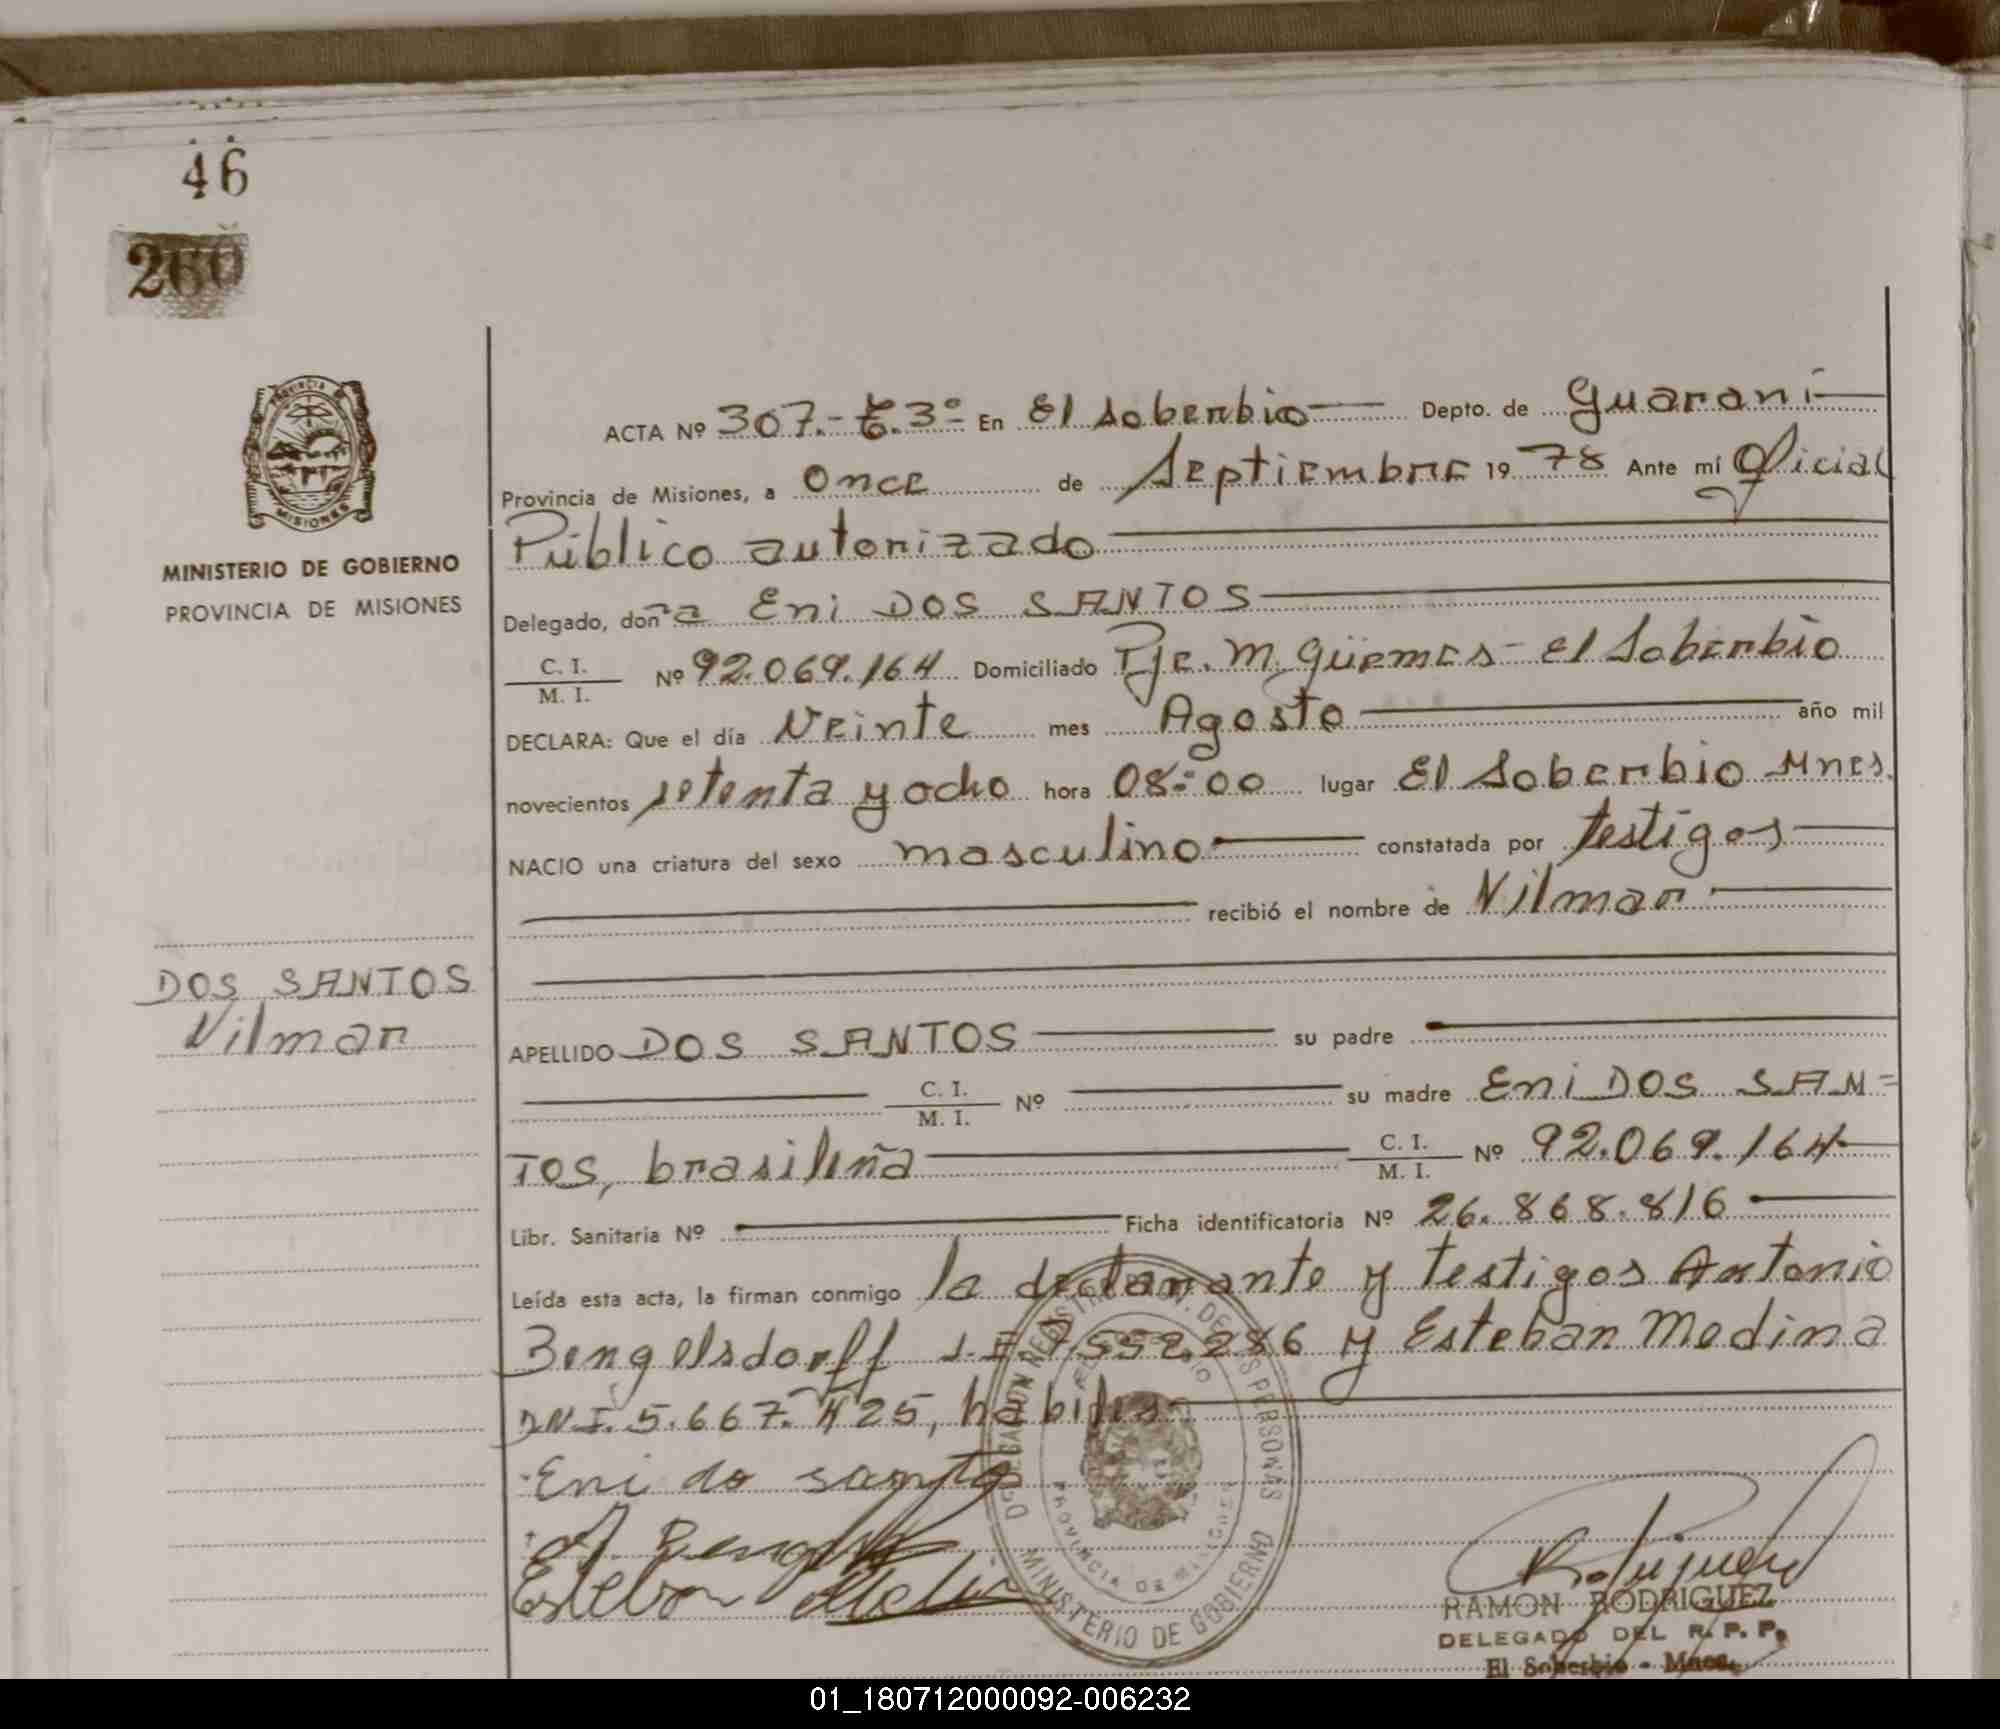 46
260
PROVINCIA
MISIONES
MINISTERIO DE GOBIERNO
PROVINCIA DE MISIONES
DOS SANTOS
Vilmar
ACTA Nº 307.- T.3º En El Soberbio Depto. de Guaraní
Provincia de Misiones, a Once de Septiembre 1978 Ante mí Oficial
Público autorizado
Delegado, doña Eni DOS SANTOS
C. I. / M. I. Nº 92.069.164 Domiciliado Pje. M. Güemes - El Soberbio
DECLARA: Que el día Veinte mes Agosto año mil
novecientos setenta y ocho hora 08:00 lugar El Soberbio Mnes.
NACIO una criatura del sexo masculino constatada por testigos
recibió el nombre de Vilmar
APELLIDO DOS SANTOS su padre
C. I. / M. I. Nº su madre Eni DOS SAN=
TOS, brasileña C. I. / M. I. Nº 92.069.164
Libr. Sanitaria Nº Ficha identificatoria Nº 26.868.816
Leída esta acta, la firman conmigo la declarante y testigos Antonio
Bengelsdorff L.E. 7.552.286 y Esteban Medina
DNI. 5.667.425, hábiles
Eni do santo
Esteban Medin
PROVINCIA DE MISIONES
MINISTERIO DE GOBIERNO
RAMON RODRIGUEZ
DELEGADO DEL R. P. P.
El Soberbio - Mnes.
01_180712000092-006232